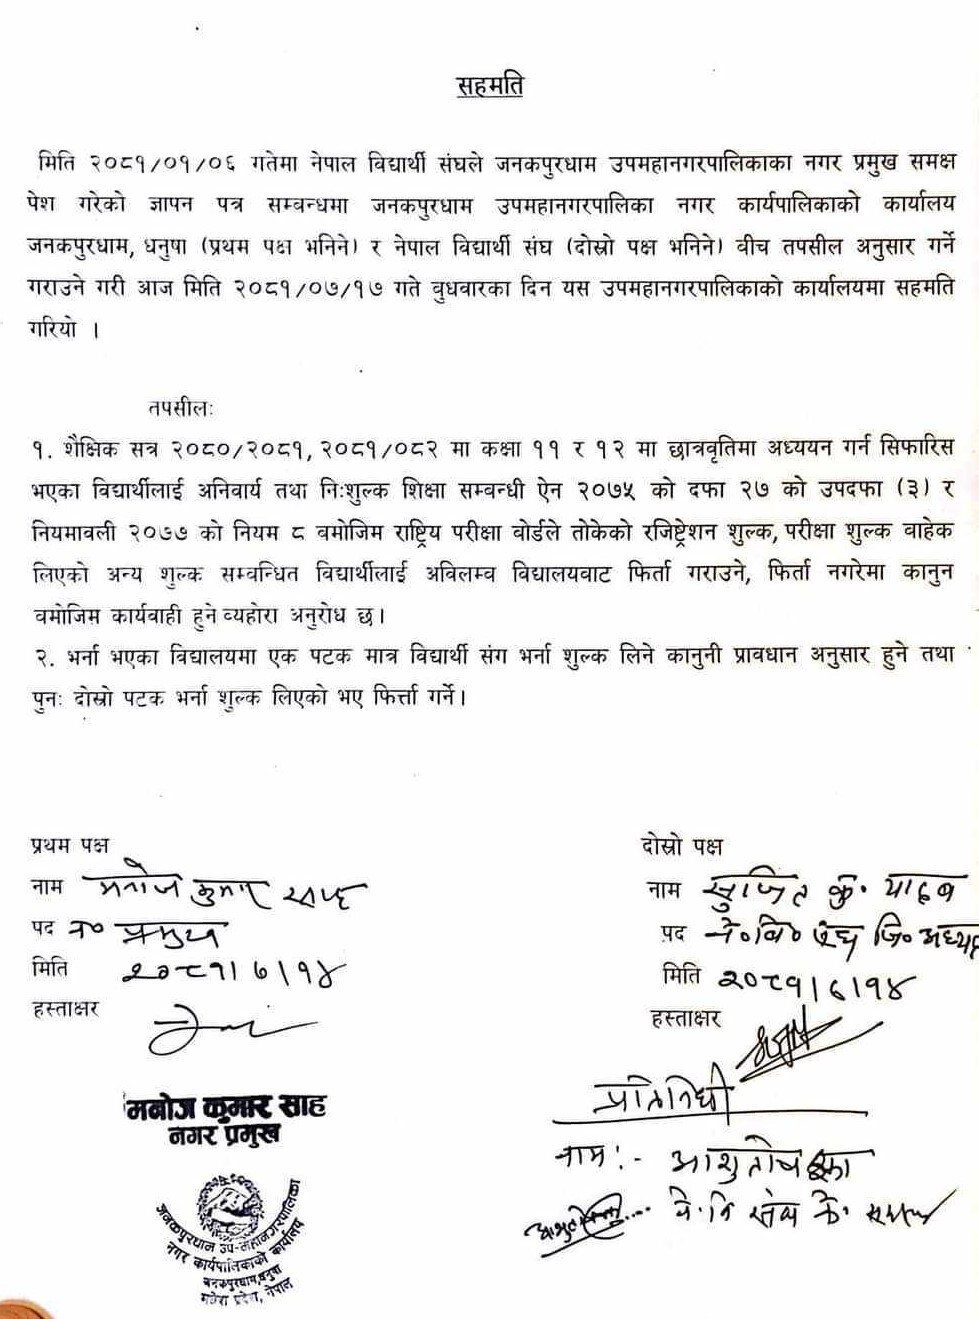 सहमति
मिति २०८१/०१/०६ गतेमा नेपाल विद्यार्थी संघले जनकपुरधाम उपमहानगरपालिकाका नगर प्रमुख समक्ष
पेश गरेको ज्ञापन पत्र सम्बन्धमा जनकपुरधाम उपमहानगरपालिका नगर कार्यपालिकाको कार्यालय
जनकपुरधाम, धनुषा (प्रथम पक्ष भनिने) र नेपाल विद्यार्थी संघ (दोस्रो पक्ष भनिने) वीच तपसील अनुसार गर्ने
गराउने गरी आज मिति २०८१/०७/१७ गते वुधवारका दिन यस उपमहानगरपालिकाको कार्यालयमा सहमति
गरियो ।
तपसीलः
१. शैक्षिक सत्र २०८०/२०८१, २०८१/०८२ मा कक्षा ११ र १२ मा छात्रवृतिमा अध्ययन गर्न सिफारिस
भएका विद्यार्थीलाई अनिवार्य तथा निःशुल्क शिक्षा सम्बन्धी ऐन २०७५ को दफा २७ को उपदफा (३) र
नियमावली २०७७ को नियम ८ वमोजिम राष्ट्रिय परीक्षा वोर्डले तोकेको रजिष्ट्रेशन शुल्क, परीक्षा शुल्क वाहेक
लिएको अन्य शुल्क सम्बन्धित विद्यार्थीलाई अविलम्व विद्यालयवाट फिर्ता गराउने, फिर्ता नगरेमा कानुन
वमोजिम कार्यवाही हुने व्यहोरा अनुरोध छ।
२. भर्ना भएका विद्यालयमा एक पटक मात्र विद्यार्थी संग भर्ना शुल्क लिने कानुनी प्रावधान अनुसार हुने तथा
पुनः दोस्रो पटक भर्ना शुल्क लिएको भए फिर्त्ता गर्ने।
प्रथम पक्ष
नाम मनोज कुमार साह
पद न० प्रमुख
मिति २०८१/७/१४
हस्ताक्षर
मनोज कुमार साह
नगर प्रमुख
जनकपुरधाम उप-महानगरपालिका
नगर कार्यपालिकाको कार्यालय
जनकपुरधाम, धनुषा
मधेश प्रदेश, नेपाल
दोस्रो पक्ष
नाम सुजित कु. यादव
पद ने०वि० संघ जि०
मिति २०८१/७/१४
हस्ताक्षर
प्रतिनिधी
नाम :- आशुतोष झा
ने.वि संघ के.